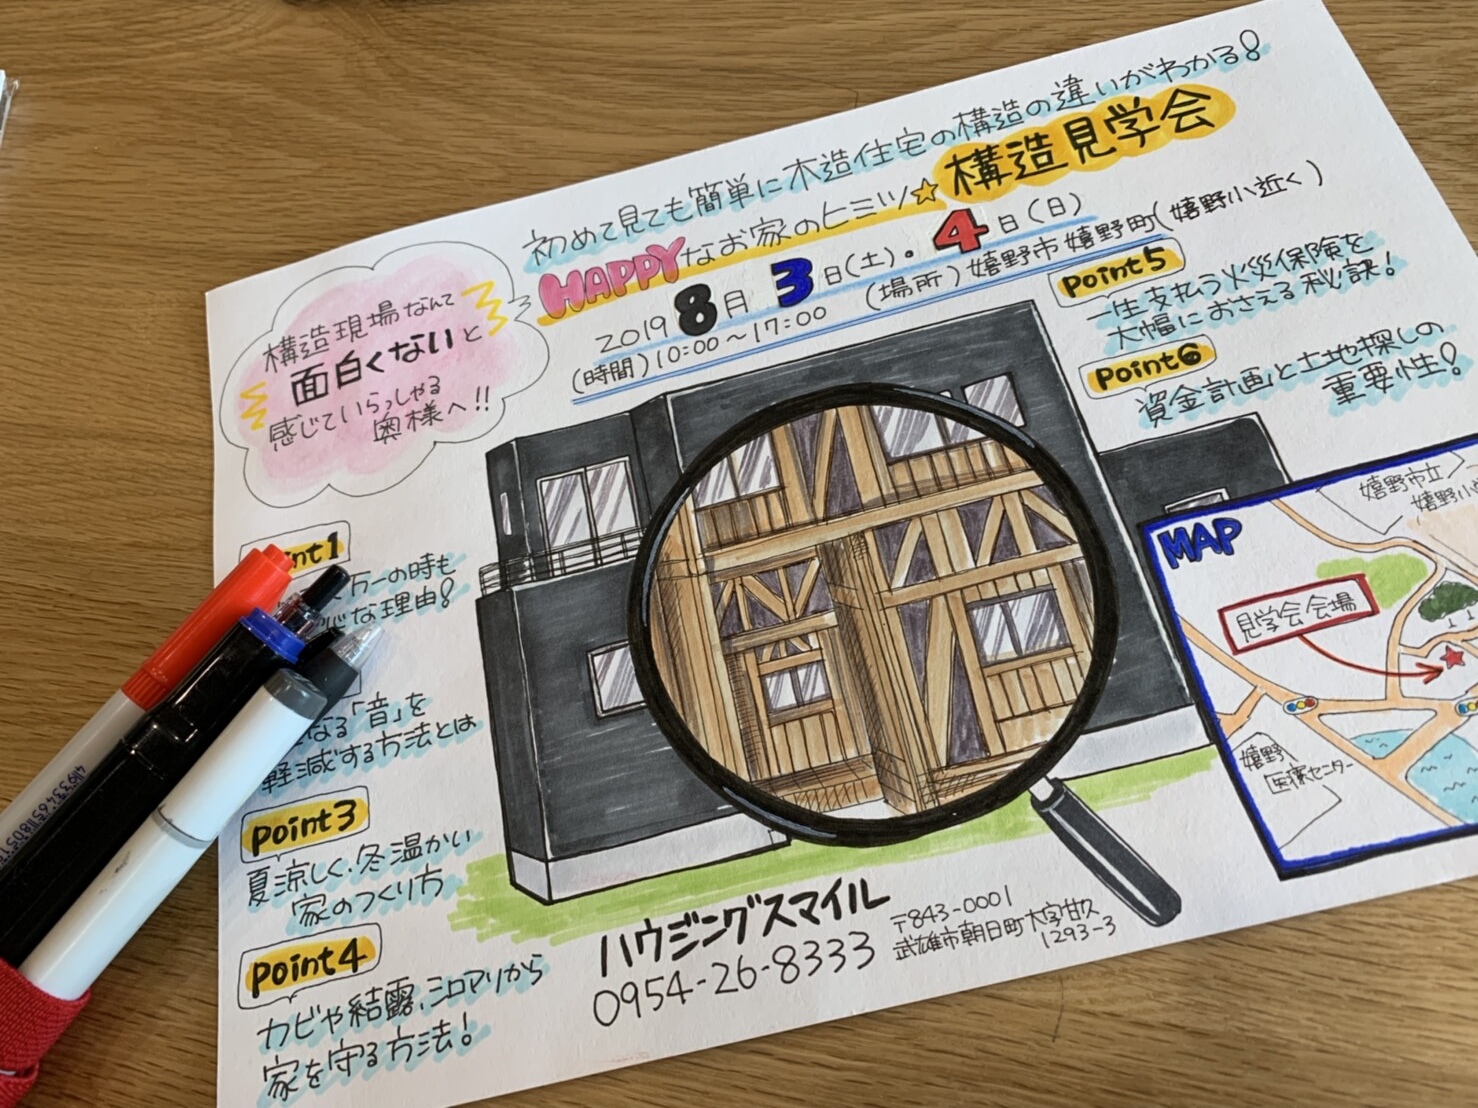 初めて見ても簡単に木造住宅の構造の違いがわかる!
HAPPYなお家のヒミツ☆構造見学会
2019 8月 3日(土)・4日(日)
(時間)10:00〜17:00 (場所)嬉野市嬉野町(嬉野小近く)
構造現場なんて
面白くないと
感じていらっしゃる
奥様へ!!
int1
万一の時も
な理由!
なる「音」を
軽減する方法とは
Point3
夏涼しく、冬温かい
家のつくり方
Point4
カビや結露、シロアリから
家を守る方法!
Point5
一生支払う火災保険を
大幅におさえる秘訣!
Point6
資金計画と土地探しの
重要性!
MAP
嬉野市立
嬉野小
見学会会場
嬉野
医療センター
ハウジングスマイル
0954-26-8333
〒843-0001
武雄市朝日町大字甘久
1293-3